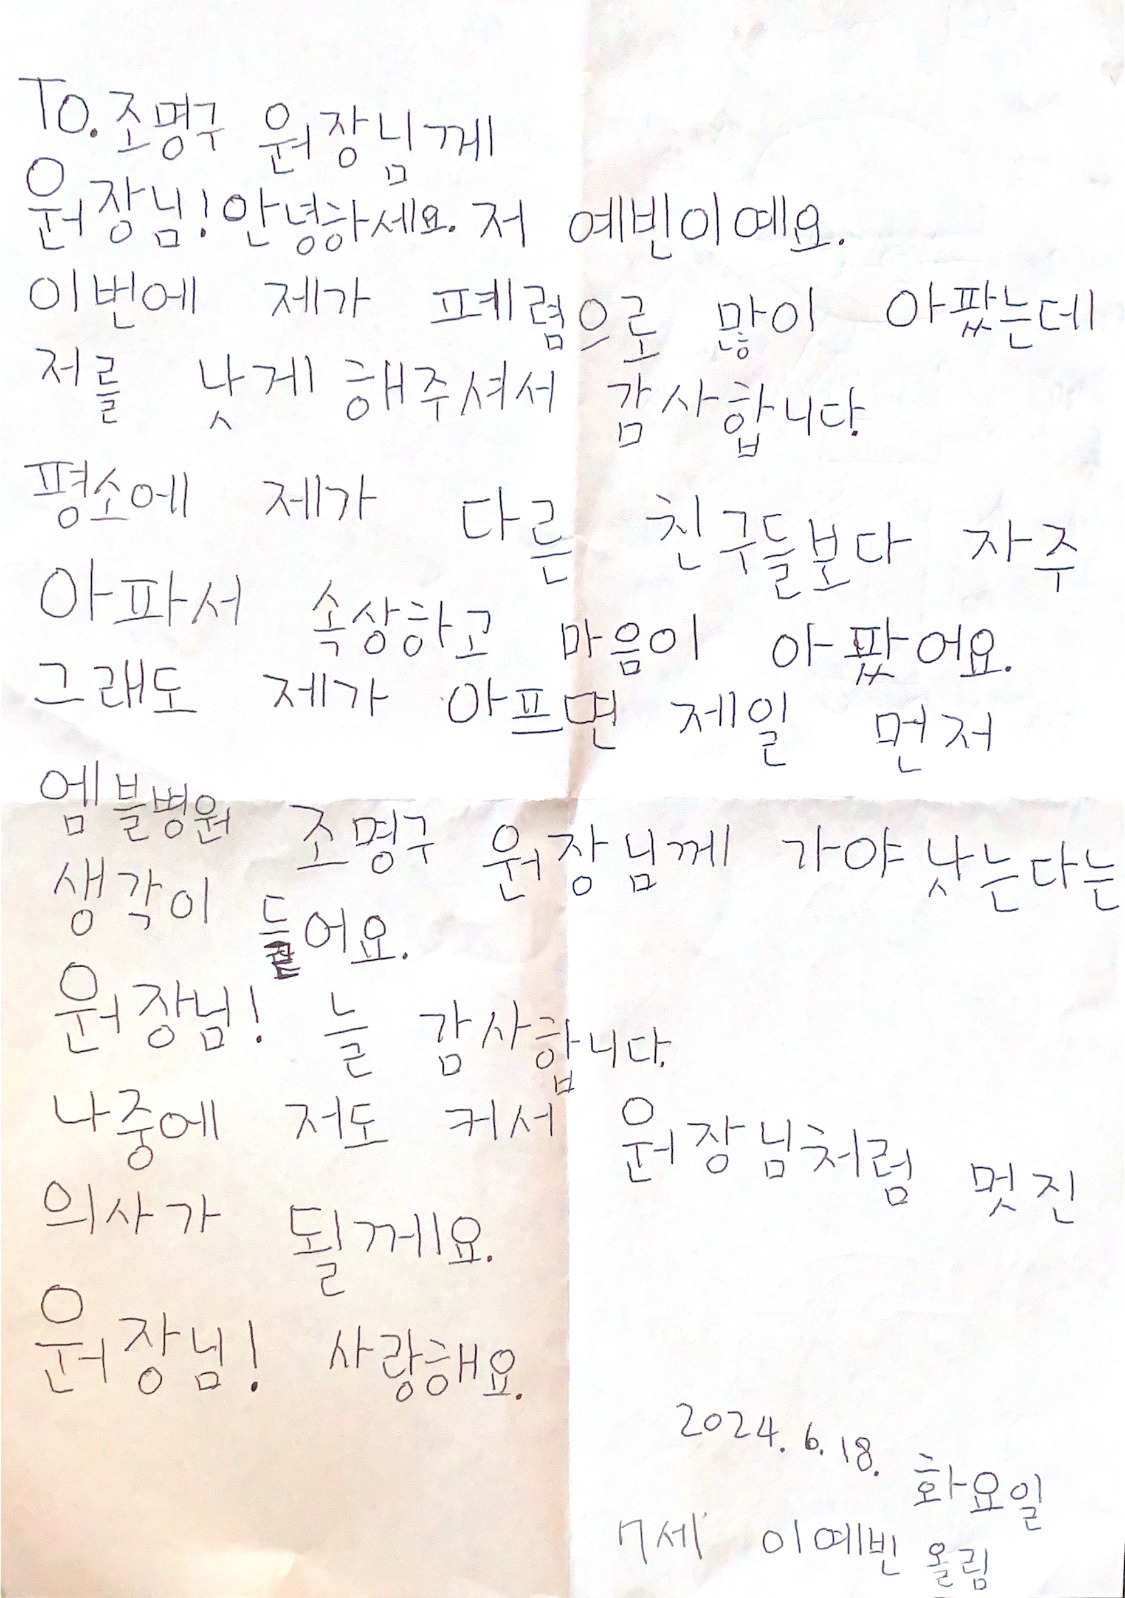 To.조명구 원장님께
원장님! 안녕하세요. 저 예빈이예요.
이번에 제가 폐렴으로 많이 아팠는데
저를 낫게 해주셔서 감사합니다.
평소에 제가 다른 친구들보다 자주
아파서 속상하고 마음이 아팠어요.
그래도 제가 아프면 제일 먼저
엠블병원 조명구 원장님께 가야 낫는다는
생각이 들어요.
원장님! 늘 감사합니다.
나중에 저도 커서 원장님처럼 멋진
의사가 될께요.
원장님! 사랑해요.
2024. 6. 18. 화요일
7세 이예빈 올림